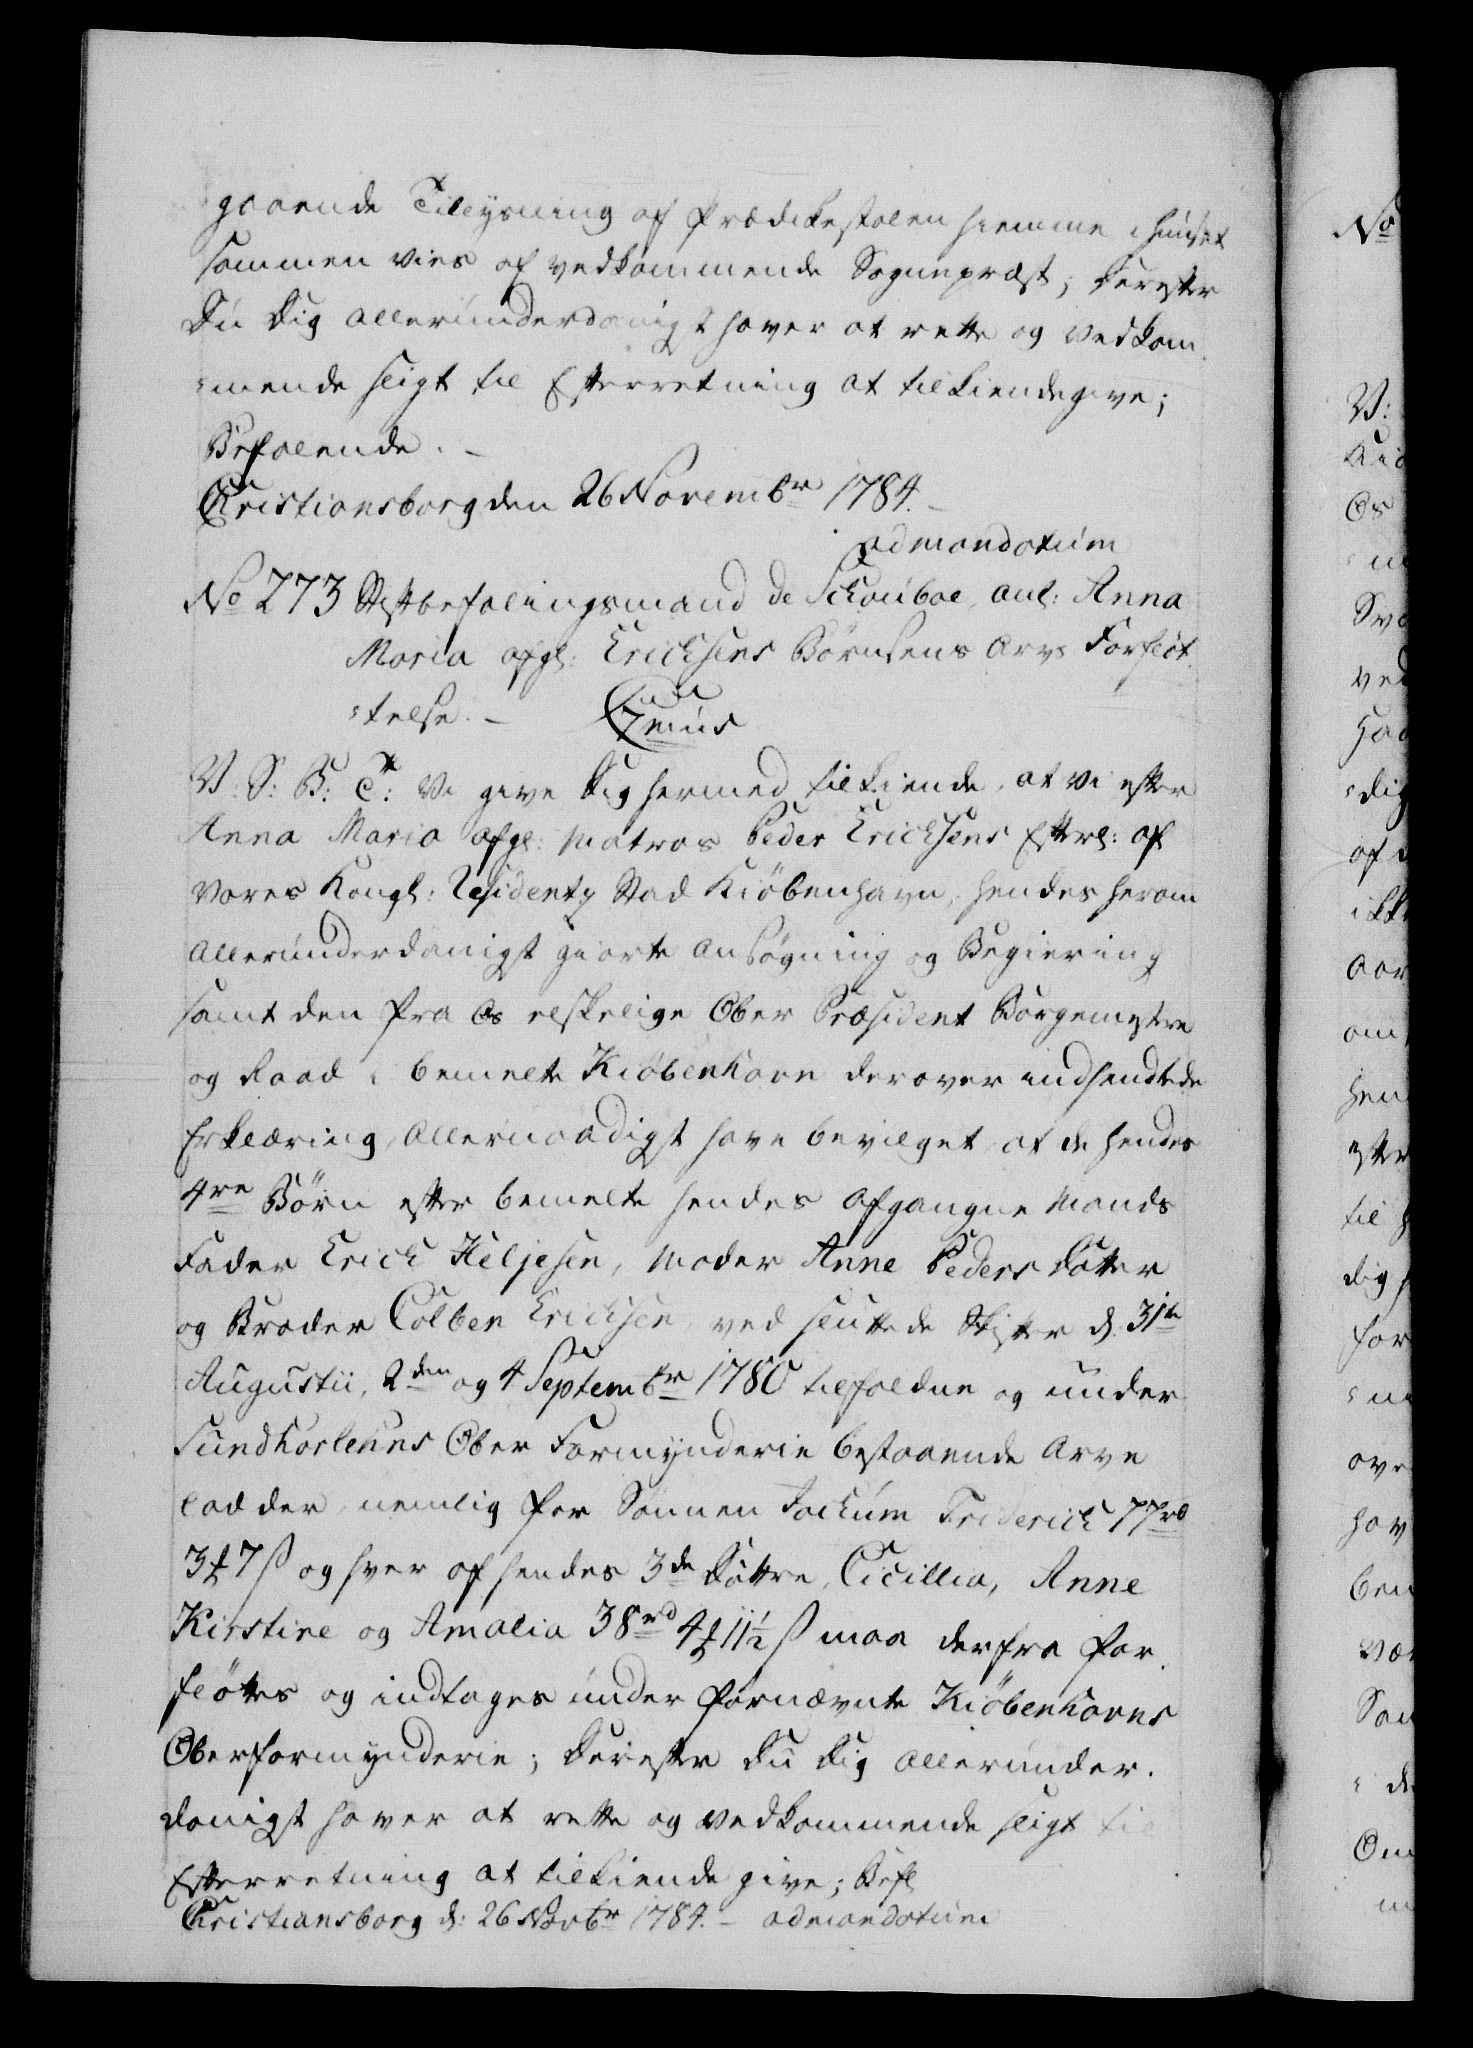 gaaende Tillysning af Prædikestolen hiemme i Huuset
sammen vies af vedkommende Sognepræst; Derefter
Du dig allerunderdanigst haver at rette og vedkom¬
=mende sligt til Efterretning at tilkiendegive;
Befalende. –
Christiansborg den 26 Novembr 1784. –
ad mandatum
No 273 Stiftbefalingsmand de Schouboe anl: Anna
Maria afgl: Ericksens Børnsens Arvs Forflöt¬
=telse. –
V: S: B: T: Vi give Dig hermed tilkiende, at vi efter
Anna Maria afgl: Matros Peder Ericksens Efterl: af
vores Kongl: Residentz Stad Kiöbenhavn, hendes herom
allerunderdanigst giorte Ansøgning og Begiering
samt den fra Os elskelige Ober Præsident Borgemestere
og Raad i bemelte Kiöbenhavn derover indsendte
Erklæring, allernaadigst have bevilget, at de hendes
4re Börn efter bemelte hendes afgangne Mands
Fader Erick Heljesen, Moder Anne Peders Datter
og Broder Colben Ericksen ved sluttede Skifter d. 31te
Augustii, 2den og 4 Septembr 1780 tilfaldne og under
Sundhorlehns Ober Formynderie bestaaende Arve
Lodder, nemlig for Sönnen Jochum Friderich 77rd
3 ʠ 7 ß og hver af hendes 3de Döttre, Cicillia, Anne
Kirstine og Amalia 38rd 4 ʠ 11½ ß maa derfra for¬
flöttes og indtages under fornævnte Kiöbenhavns
Oberformynderie; Derefter Du dig allerunder¬
danigst haver at rette og vedkommende sligt til
Efterretning at tilkiende give; Befl
Christiansborg d: 26 Novbr 1784. – ad mandatum